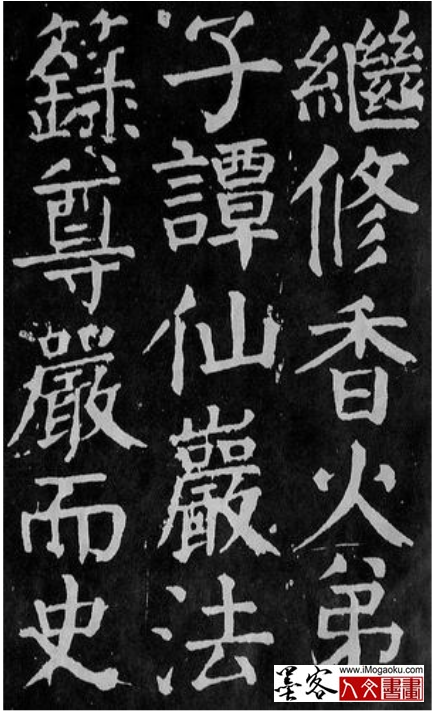 繼修香火弟
子譚仙巖法
籙尊嚴而史
墨客
www.iMogaoku.com
人文書畫